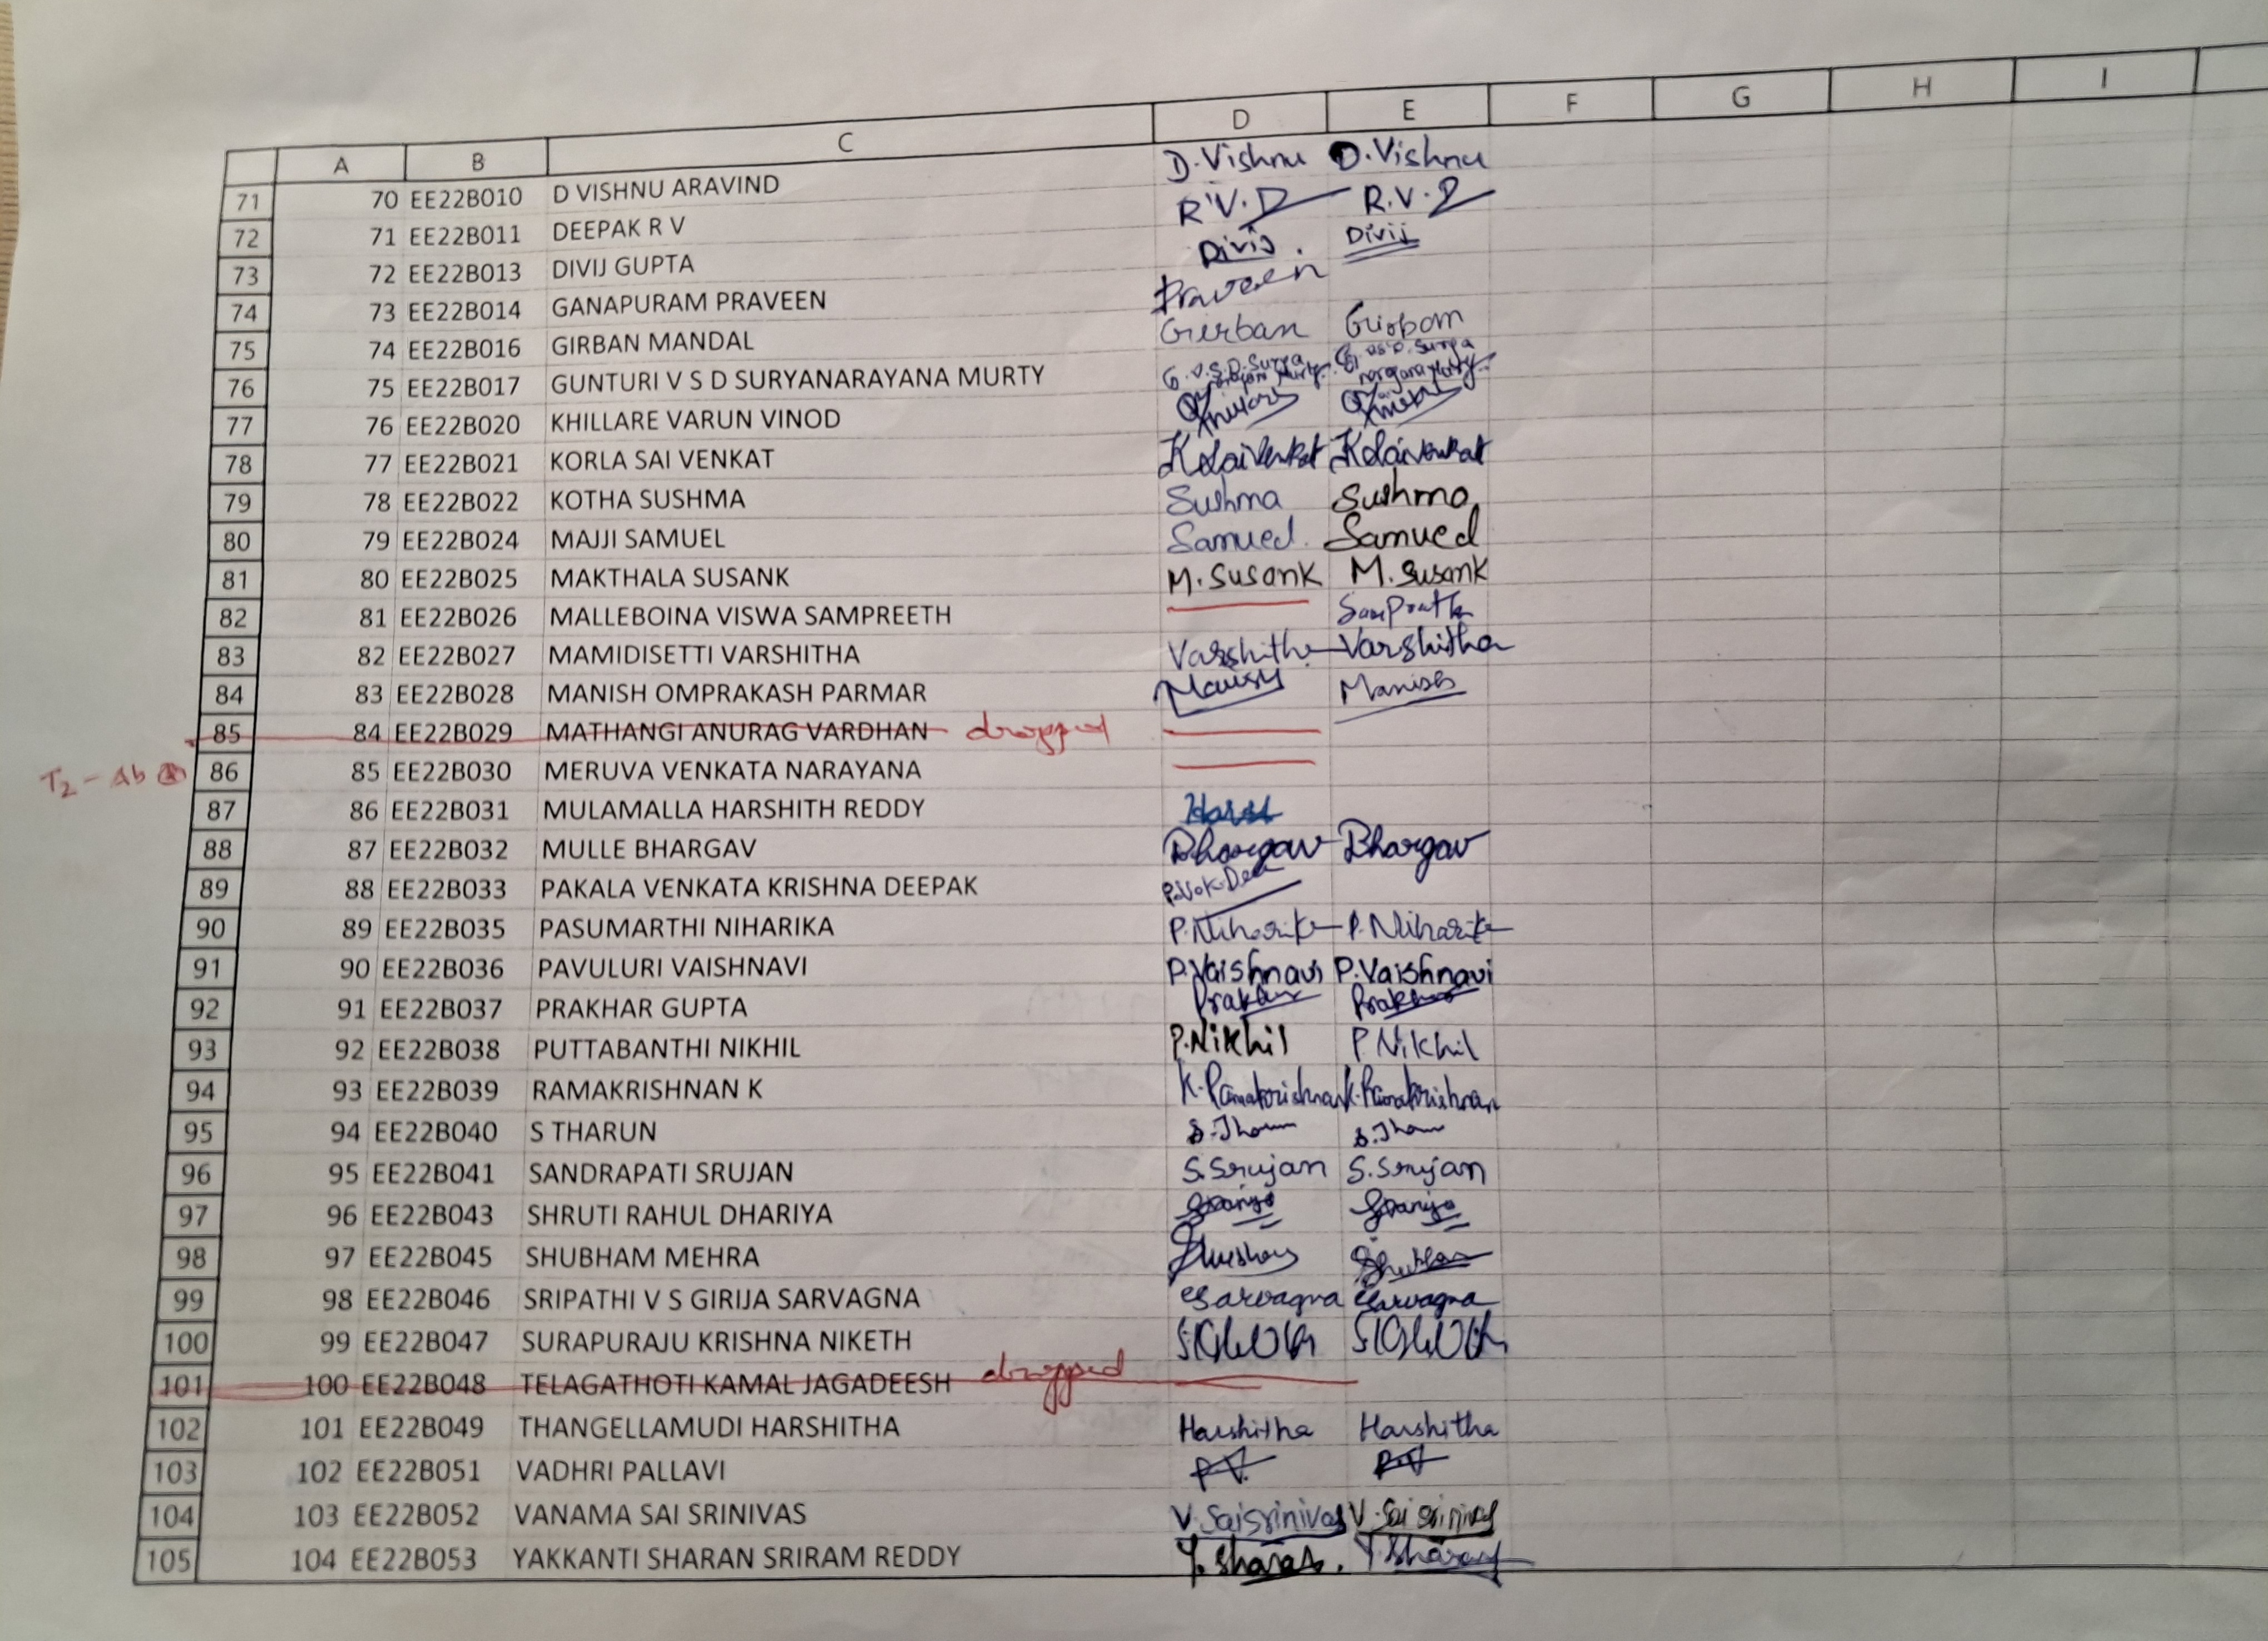 A B C D E F G H I
71 70 EE22B010 D VISHNU ARAVIND D.Vishnu D.Vishnu
72 71 EE22B011 DEEPAK R V R.V.D R.V.D
73 72 EE22B013 DIVIJ GUPTA Divij . Divij
74 73 EE22B014 GANAPURAM PRAVEEN Praveen
75 74 EE22B016 GIRBAN MANDAL Girban
76 75 EE22B017 GUNTURI V S D SURYANARAYANA MURTY
77 76 EE22B020 KHILLARE VARUN VINOD
78 77 EE22B021 KORLA SAI VENKAT KSaiVenkat KSaivenkat
79 78 EE22B022 KOTHA SUSHMA Sushma Sushma
80 79 EE22B024 MAJJI SAMUEL Samuel Samuel
81 80 EE22B025 MAKTHALA SUSANK M.Susank M.Susank
82 81 EE22B026 MALLEBOINA VISWA SAMPREETH
83 82 EE22B027 MAMIDISETTI VARSHITHA Varshitha Varshitha
84 83 EE22B028 MANISH OMPRAKASH PARMAR Manish Manish
85 84 EE22B029 MATHANGI ANURAG VARDHAN dropped
T2 - Ab 86 85 EE22B030 MERUVA VENKATA NARAYANA
87 86 EE22B031 MULAMALLA HARSHITH REDDY
88 87 EE22B032 MULLE BHARGAV Bhargav Bhargav
89 88 EE22B033 PAKALA VENKATA KRISHNA DEEPAK
90 89 EE22B035 PASUMARTHI NIHARIKA P.Niharika P.Niharika
91 90 EE22B036 PAVULURI VAISHNAVI P.Vaishnavi P.Vaishnavi
92 91 EE22B037 PRAKHAR GUPTA Prakhar Prakhar
93 92 EE22B038 PUTTABANTHI NIKHIL P.Nikhil P.Nikhil
94 93 EE22B039 RAMAKRISHNAN K K.Ramakrishnan K.Ramakrishnan
95 94 EE22B040 S THARUN
96 95 EE22B041 SANDRAPATI SRUJAN S.Srujan S.Srujan
97 96 EE22B043 SHRUTI RAHUL DHARIYA
98 97 EE22B045 SHUBHAM MEHRA
99 98 EE22B046 SRIPATHI V S GIRIJA SARVAGNA Sarvagna Sarvagna
100 99 EE22B047 SURAPURAJU KRISHNA NIKETH
101 100 EE22B048 TELAGATHOTI KAMAL JAGADEESH dropped
102 101 EE22B049 THANGELLAMUDI HARSHITHA Harshitha Harshitha
103 102 EE22B051 VADHRI PALLAVI
104 103 EE22B052 VANAMA SAI SRINIVAS V.Saisrinivas V.Sai srinivas
105 104 EE22B053 YAKKANTI SHARAN SRIRAM REDDY Y.Sharan. Y.Sharan